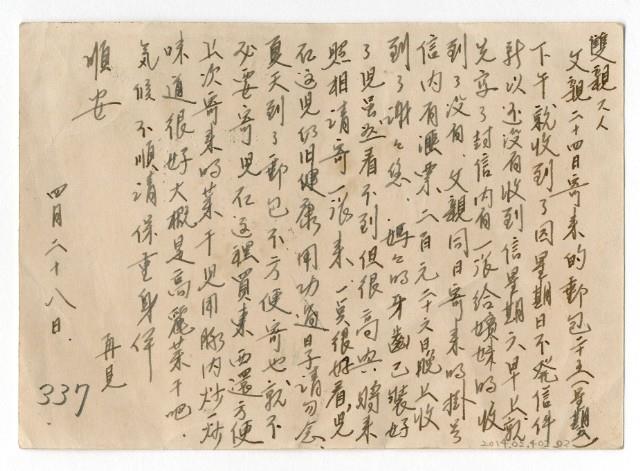 雙親大人
父親二十四日寄來的郵包二十五(星期
下午就收到了因星期日不發信件
所以还沒有收到信星期六早上就
先寫了封信內有一張給嬸妹的收
到了沒有.父親同日寄來的掛号
信內有滙票二百元二十六日晚上收
到了謝々您.媽々的牙齒已裝好
了兒虽然看不到但很高兴.將來
照相請寄一張來.一定很好看,兒
在这兒仍旧健康用功過日子請勿念.
夏天到了郵包不方便寄也就不
必要寄兒在这裡買東西還方便
上次寄來的菜干兒用豚肉炒一炒
味道很好大概是高麗菜干吧.
氣候不順請保重身体
順安
再見
四月二十八日.
337
2014.025.0402.02